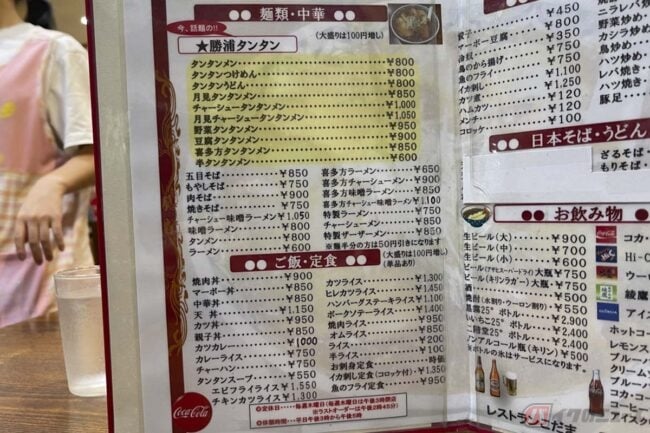 ●● 麺類・中華 ●●
今、話題の!!
★勝浦タンタン
(大盛りは100円増し)
タンタンメン ¥800
タンタンつけめん ¥800
タンタンうどん ¥800
月見タンタンメン ¥850
チャーシュータンタンメン ¥1,000
月見チャーシュータンタンメン ¥1,050
野菜タンタンメン ¥950
豆腐タンタンメン ¥900
喜多方タンタンメン ¥850
半タンタンメン ¥600
五目そば ¥850
もやしそば ¥750
肉そば ¥900
焼きそば ¥750
チャーシュー味噌ラーメン ¥1,050
味噌ラーメン ¥800
タンメン ¥800
ラーメン ¥600
喜多方ラーメン ¥650
喜多方チャーシューメン ¥900
喜多方味噌ラーメン ¥850
喜多方チャーシュー味噌ラーメン ¥1,100
特製ラーメン ¥750
チャーシューメン ¥850
特製ザーザーメン ¥850
※麺半分の方は50円引きになります
●● ご飯・定食 ●●
(大盛りは100円増し)
(単品あり)
焼肉丼 ¥900
マーボー丼 ¥850
中華丼 ¥850
天丼 ¥1,150
カツ丼 ¥950
親子丼 ¥850
カツカレー ¥1000
カレーライス ¥750
チャーハン ¥750
タンタンスープ ¥550
エビフライライス ¥1,550
チキンカツライス ¥1,300
カツライス ¥1,300
ヒレカツライス ¥1,450
ハンバーグステーキライス ¥1,100
ポークソテーライス ¥1,400
焼肉ライス ¥950
オムライス ¥850
ライス ¥200
半ライス ¥100
お刺身定食 時価
イカ刺し定食(コロッケ付) ¥1,350
魚のフライ定食 ¥950
Coca-Cola
◎定休日……毎週木曜日(毎週水曜日は午後3時閉店
※ラストオーダーは午後2時45分)
◎休憩時間……平日午後3時から午後5時
餃子 ¥450
マーボー豆腐 ¥850
冷奴 ¥350
鳥のから揚げ ¥750
魚のフライ ¥750
イカ刺し ¥1,250
カツ煮 ¥750
ハムカツ ¥120
メンチ ¥120
コロッケ ¥100
ニラレバ
野菜炒め
カシラ炒め
鳥炒め
ハツ炒め
レバ焼き
豚足
●● 日本そば・うどん
ざるそば
もりそば
●● お飲み物
生ビール(大) ¥900
生ビール(中) ¥700
生ビール(小) ¥600
ビール(アサヒスーパードライ) 大瓶 ¥750
ビール(キリンラガー) 大瓶 ¥750
酒 ¥500
焼酎(水割り・ウーロン割り) ¥550
黒霧25° ボトル ¥2,400
いいちこ25° ボトル ¥2,900
二階堂25° ボトル ¥2,900
ノンアルコール瓶(キリン) ¥500
※ボトルの氷はサービスになります。
コカ・
Hi-C
ウーロ
綾鷹
アイス
ホットコー
レモンス
ブルーハ
クリーム
ブルーノ
クリーム
アイスク
レストランこだま